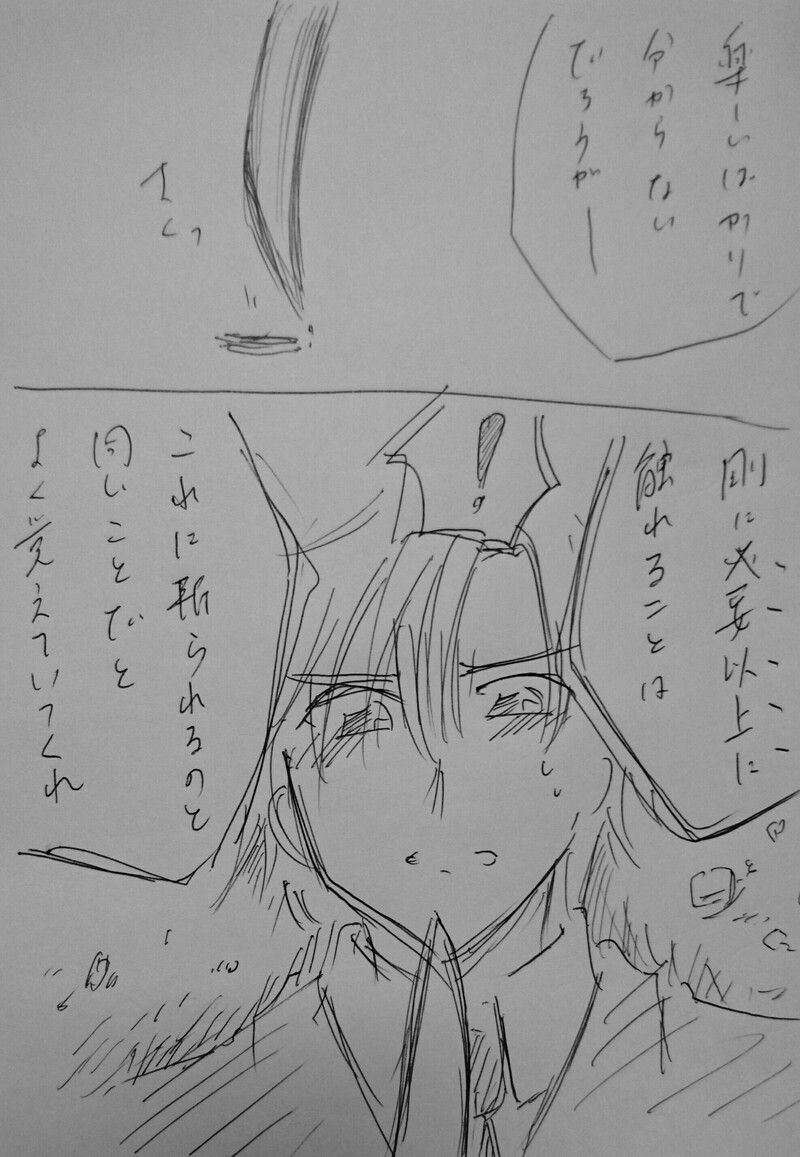 楽しいばかりで
分からない
だろうが—
すくっ
！
剛に必要以上に
触れることは
これに斬られるのと
同じことだと
よく覚えていてくれ